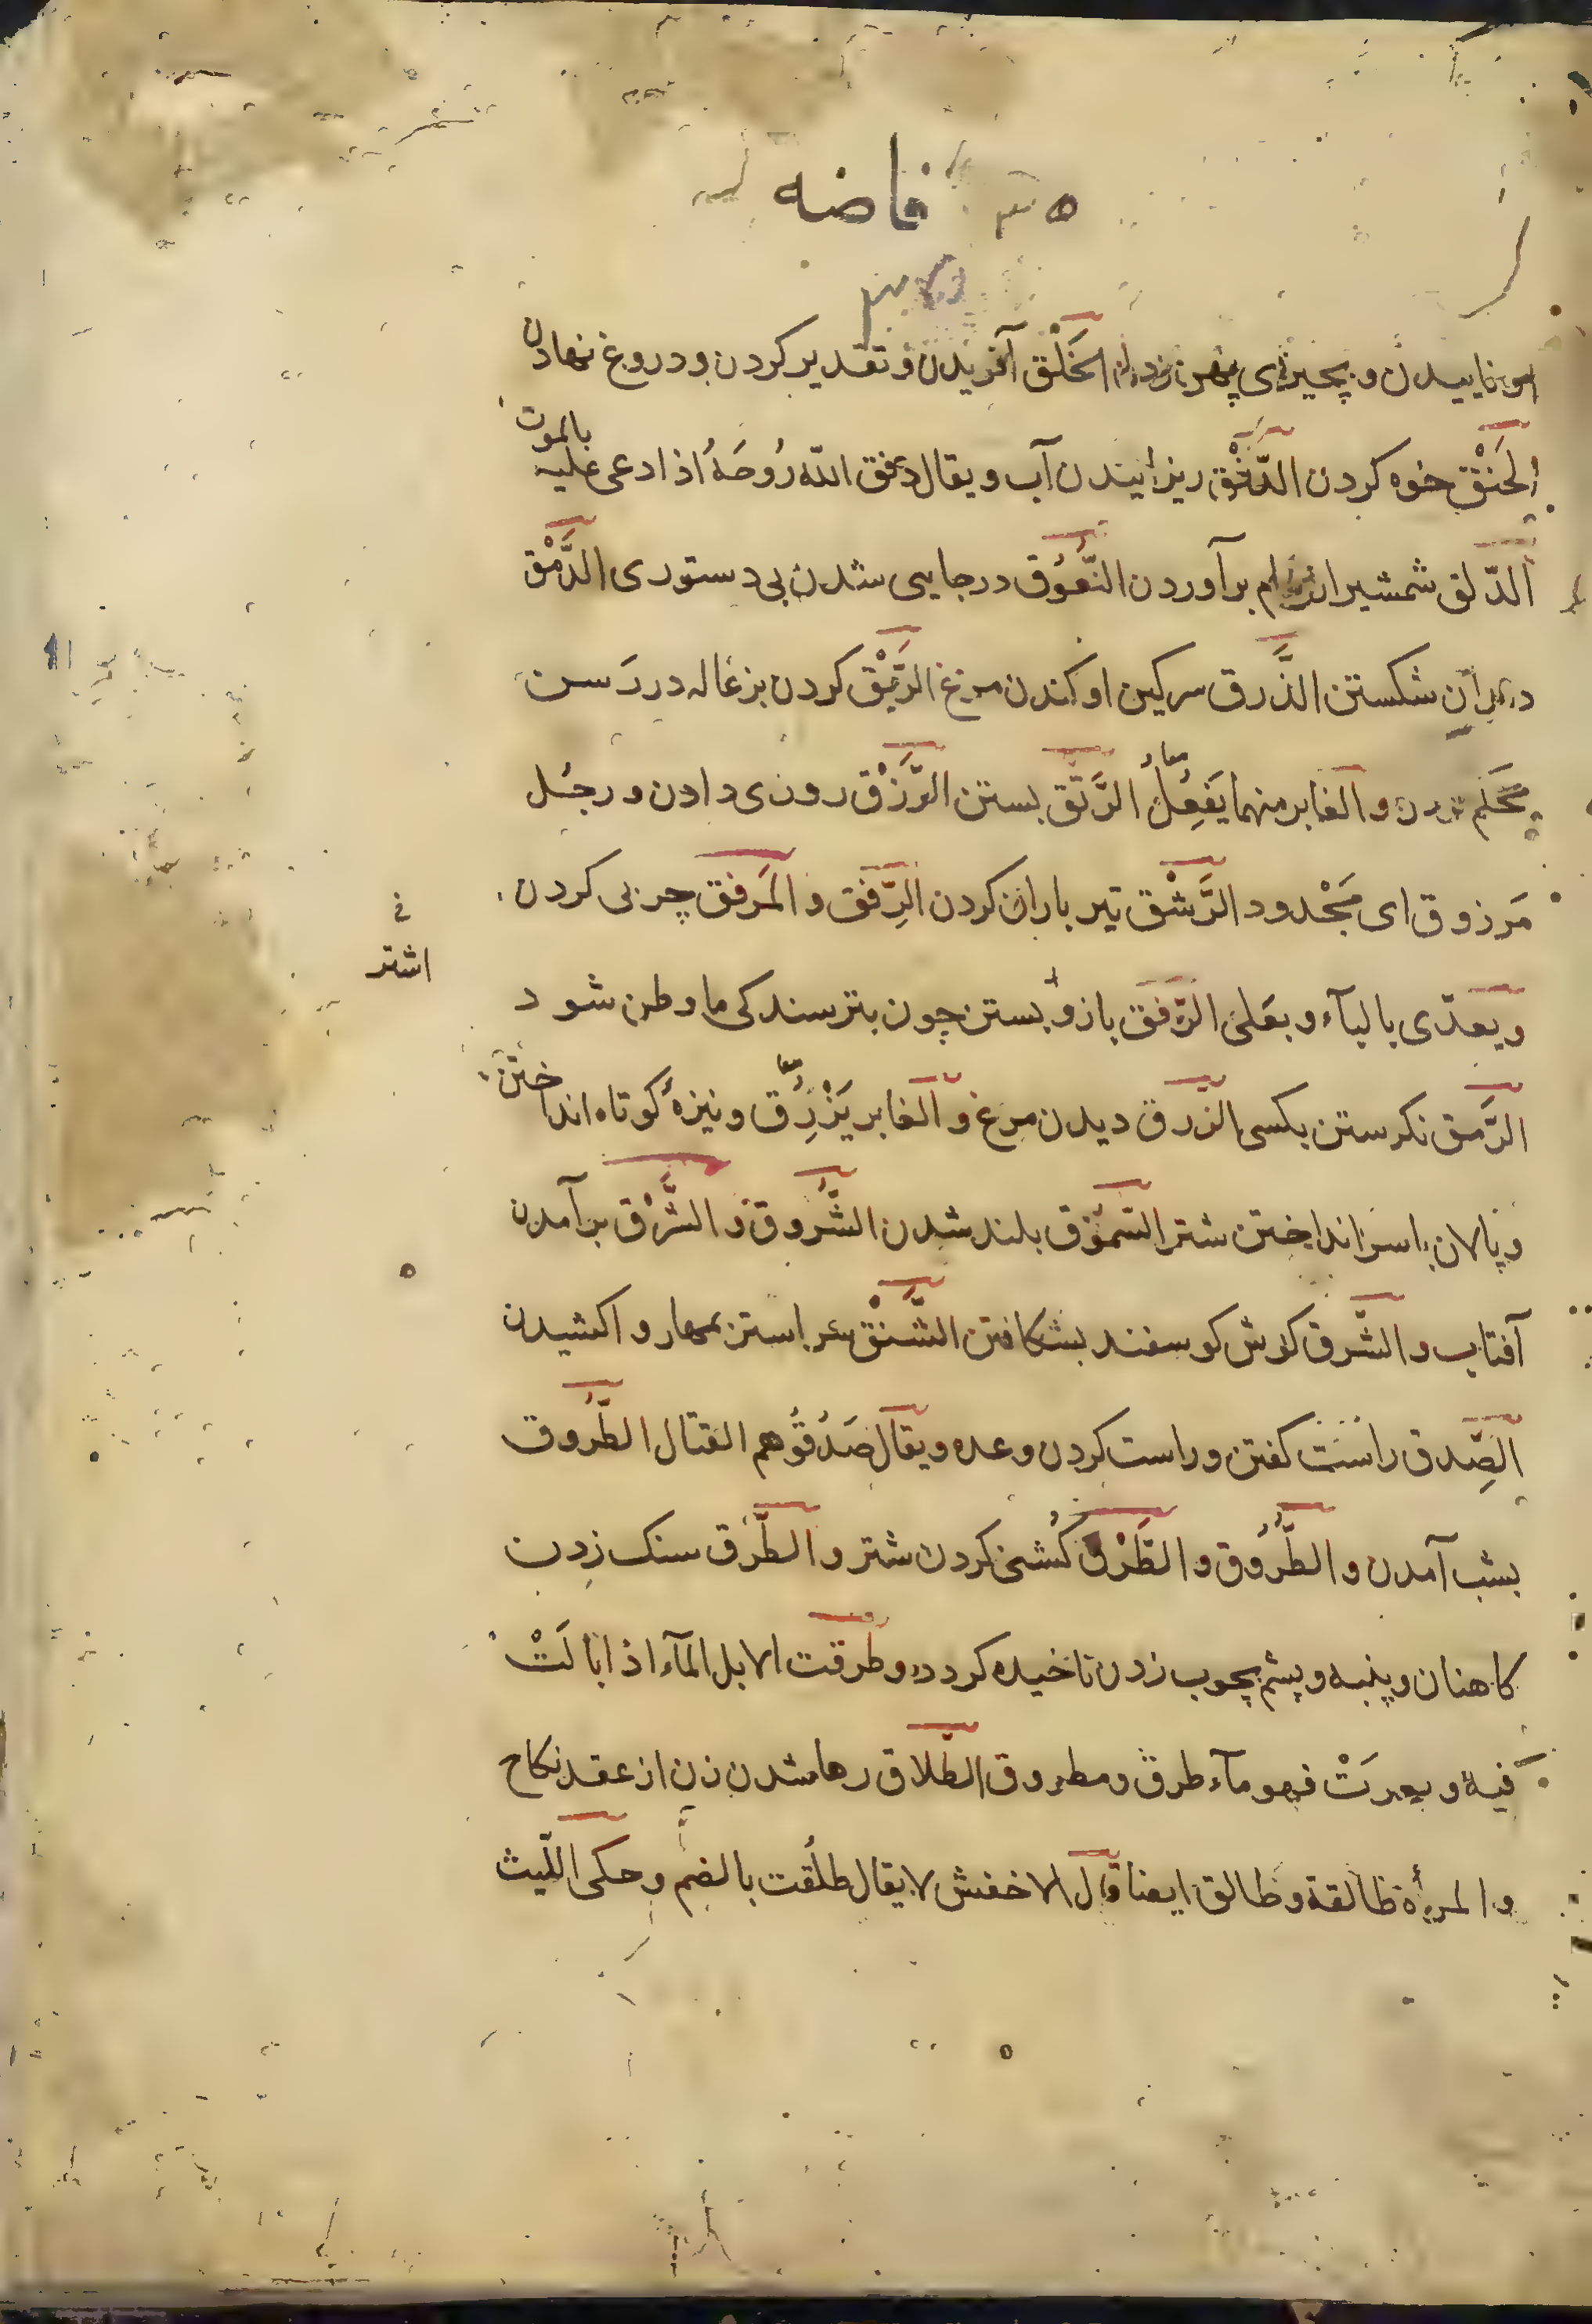 فاضه
الخَلْق آفریدن و تقدیر کردن و دروغ نهادن
الخَنْق خوه کردن الدَّفْق ریزانیدن آب و یقال دفق الله رُوحَهُ اذا دعی علیه بالموت
الدّلق شمشیر از نیام برآوردن الدُّمُوق درجایی شدن بی دستوری الدَّمْق
شکستن الذَّرق سرکین اوکندن مرغ الرَّبْق کردن بزغاله در رَسن
محکم و الغابر منهما یَفعِلُ معًا الرَّتْق بستن الرَّزْق روزی دادن و رجُل
مَرزوق ای مَجْدود الرَّشْق تیر باران کردن الرِّفق و المَرفق چربی کردن
ویعدّی بالبآء و بعَلی الرَّفق بازو بستن چون بترسند کی ما وطن شود
فی
اشتر
الرَّمق نکرستن بکسی الزرق دیدن مرغ و الغابر یَزْرِق معًا و نیزهٔ کوتاه انداختن
و پالان باسر انداختن شتر السّموق بلند شدن الشُّروق و الشَّرْق برآمدن
آفتاب و الشَّرق کوش کوسفند بشکافتن الشَّنْق سر استر بمهار واکشیدن
الصِّدق راست کفتن و راست کردن وعده ویقال صَدَقُوهم القتال الطُّروق
بشب آمدن و الطُّرُوق و الطَّرْق کُشنی کردن شتر و الطَّرْق سنک زدن
کاهنان و پنبه و پشم بچوب زدن تا خیده کردد و طرقت الابل المآء اذا بالَتْ
فیه و بعرَتْ فهو مآء طرق و مطروق الطّلاق رها شدن زن از عقد نکاح
و المرأة طالقة و طالق ایضا قال الاخفش لایقال طلُقت بالضم و حکی اللّیث